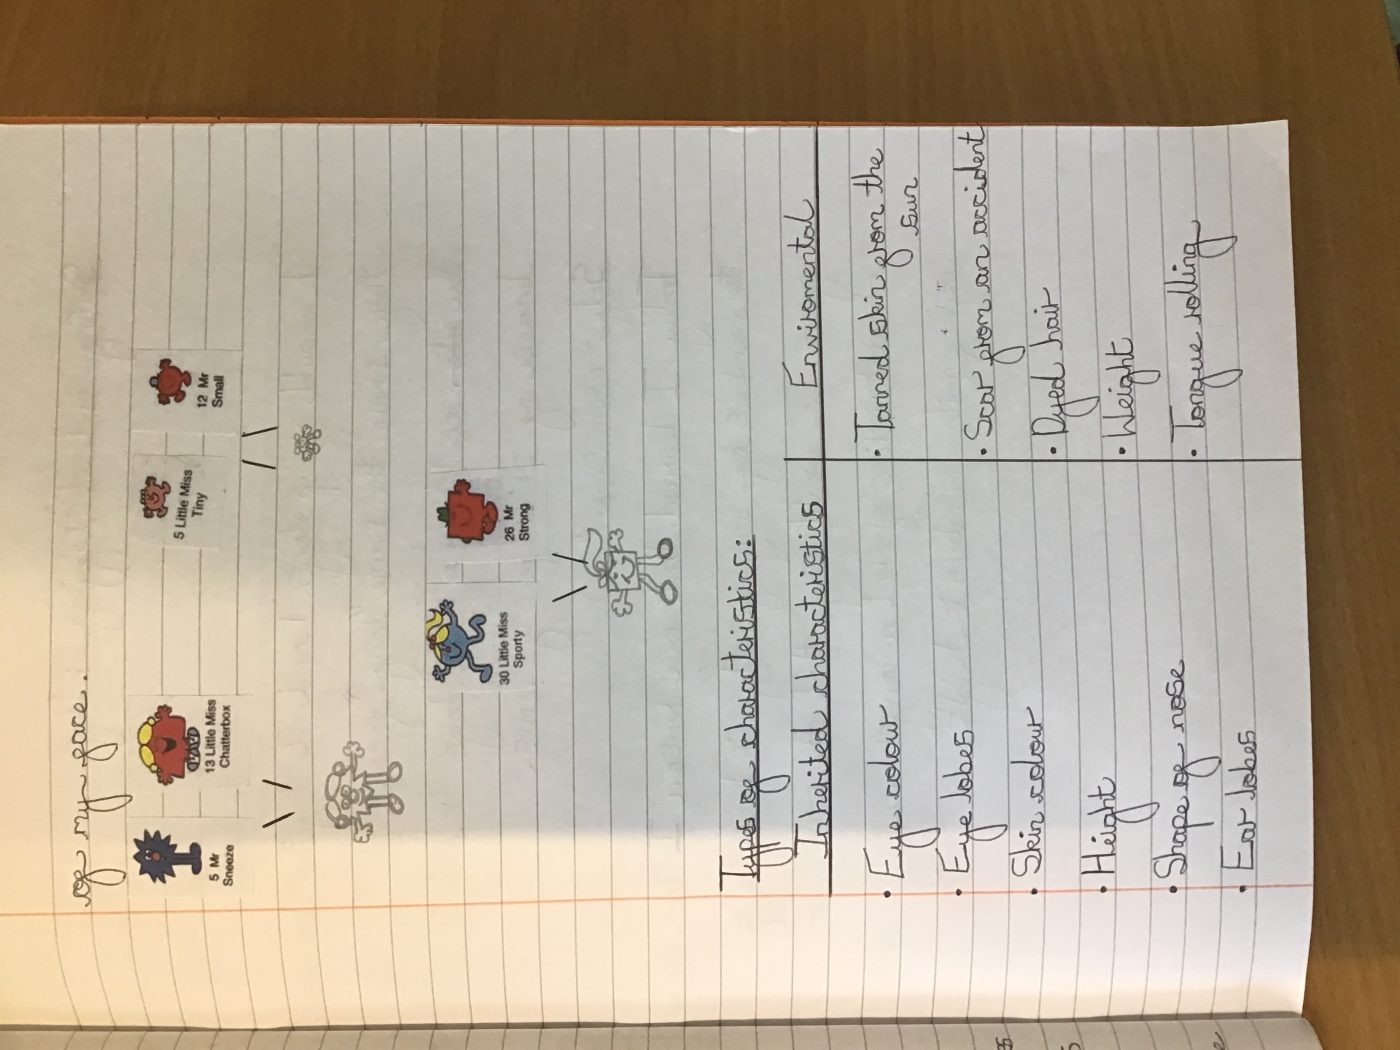 of my face.
5 Mr
Sneeze
13 Little Miss
Chatterbox
5 Little Miss
Tiny
12 Mr
Small
30 Little Miss
Sporty
26 Mr
Strong
Types of characteristics:
Inherited characteristics
• Eye colour
• Eye lobes
• Skin colour
• Height
• Shape of nose
• Ear lobes
Enviromental
• Tanned skin from the
sun
• Scar from an accident
• Dyed hair
• Weight
• Tongue rolling